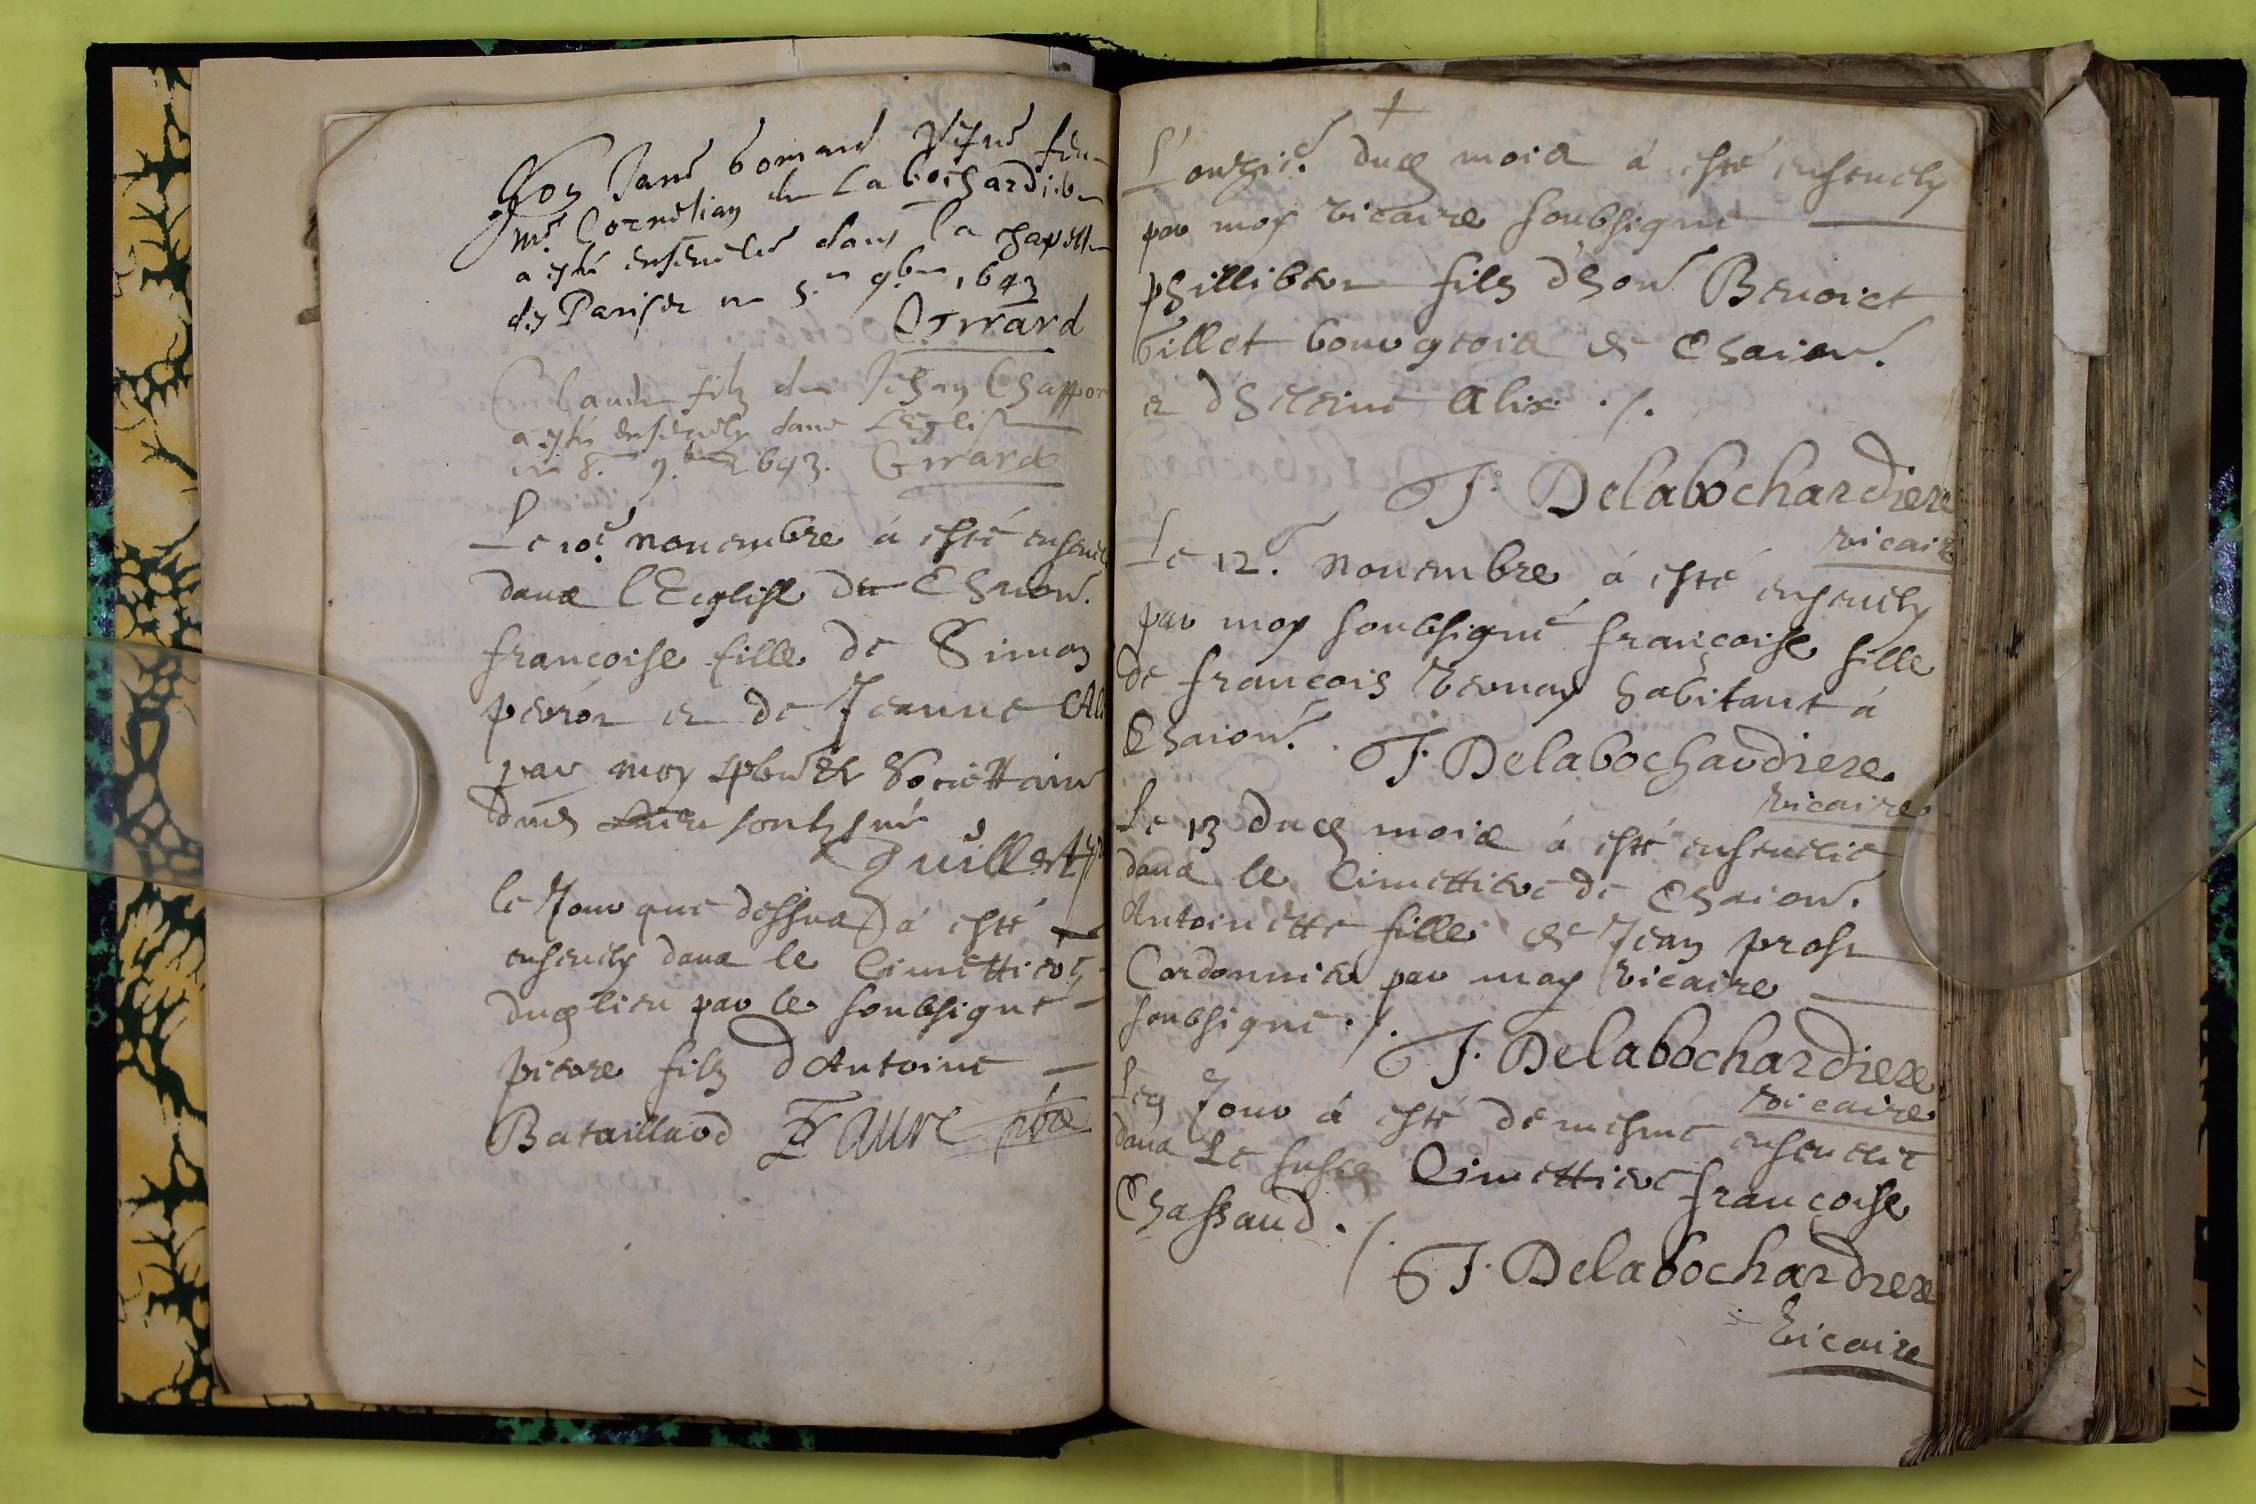 hon Jane bonnard vefve feu
Mre Cornelian de Labochardiere
a esté ensevelie dans la chapelle
des Parises ce 5e 9bre 1643
Girrard
Claude filz de Jehan Chappon
a esté ensevely dans l'Eglise
ce 8e 9bre 1643. Girrard
Le 10e novembre à esté ensevely
dans l'Ecglise de Charon.
françoise fille de Simon
perron et de Jeanne
par moy pbre et Societtaire
dud soubsigné
Quillet
le Jour que dessus à esté
ensevely dans le Cimettiere
dudt lieu par le soubsigné
pierre filz d'Antoine
Bataillard Faure pbre
L'onziè. dud mois à esté ensevely
par moy vicaire soubsigné
phillibert filz d'hon Benoict
Gillet bourgeois de Charon.
et d'h Alix ./.
J. Delabochardiere
vicaire
Le 12. Novembre à esté ensevely
par moy soubsigné françoise fille
de françois Vernay habitant à
Charon. J. Delabochardiere
vicaire
Le 13 dud mois à esté ensevelie
dans le Cimettiere de Charon.
Antoinette fille de Jean prost
Cordonnier par moy vicaire
soubsigné ./.
J. Delabochardiere
vicaire
Led Jour à esté de mesme ensevelie
dans Le susd Cimettiere françoise
Chassaud ./.
J. Delabochardiere
vicaire